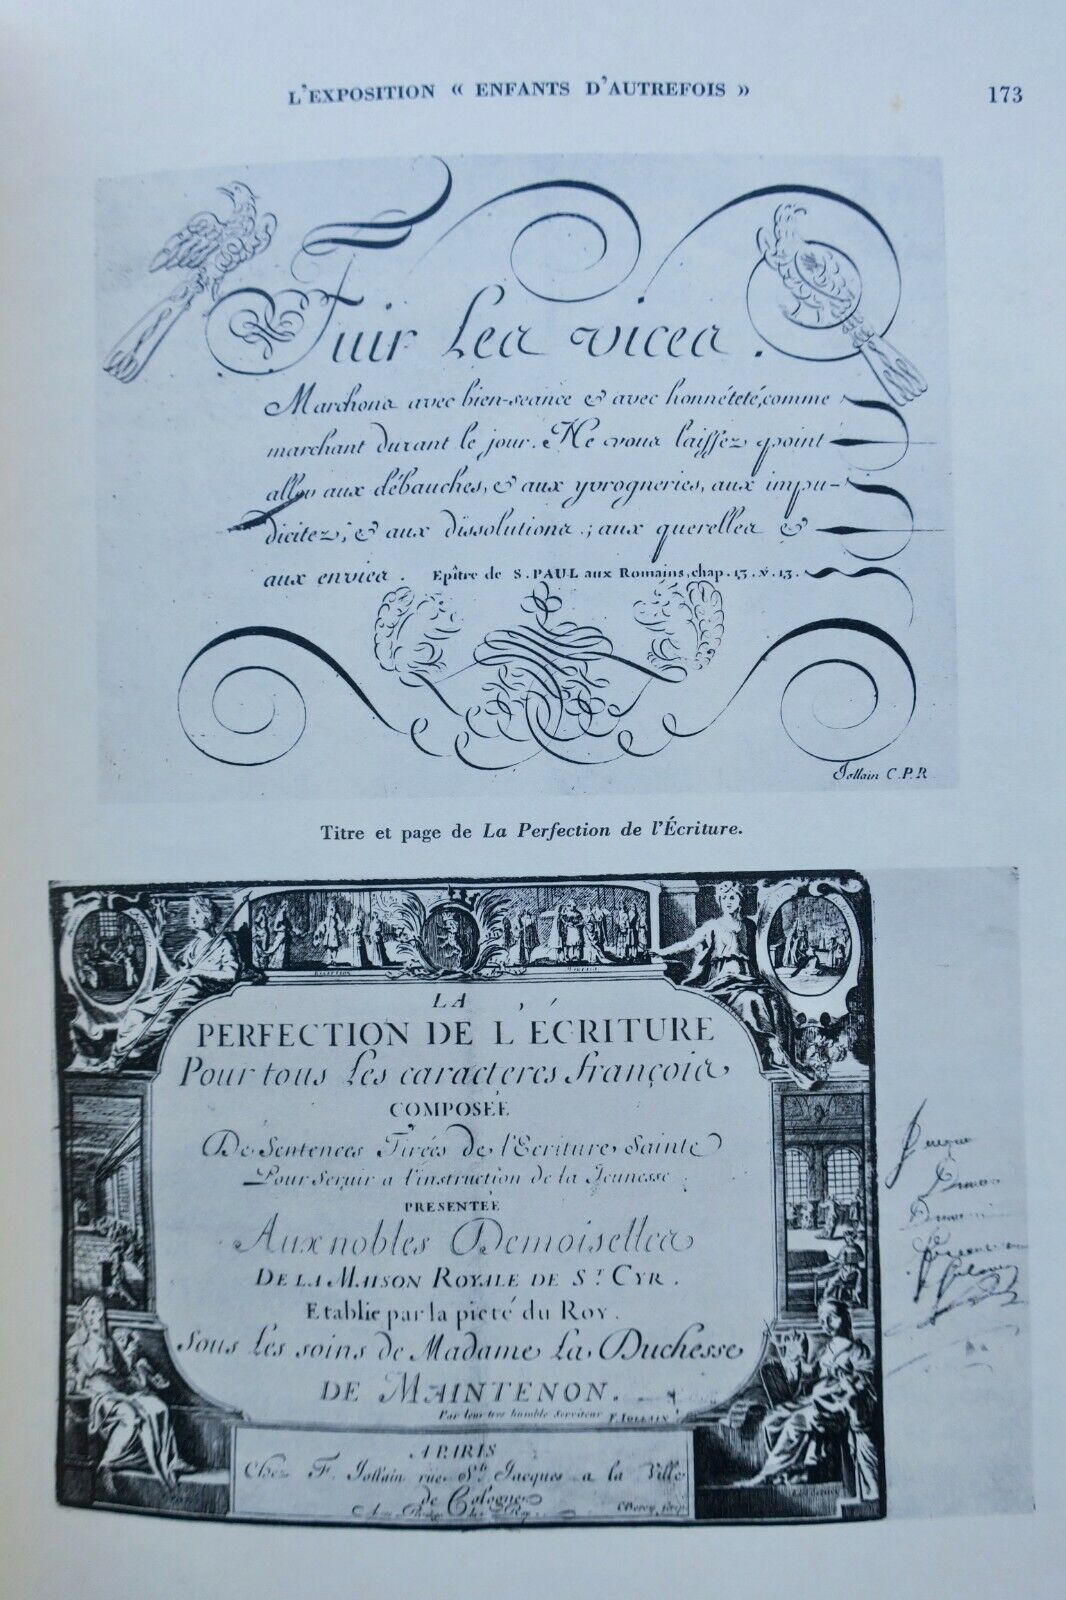 L'EXPOSITION « ENFANTS D'AUTREFOIS »
173
Fuir Les vices.
Marchons avec bien-seance & avec honnéteté, comme
marchant durant le jour. Ne vous laissez point
aller aux débauches, & aux yvrogneries, aux impu-
dicitez, & aux dissolutions; aux querelles &
aux envies. Epître de S. PAUL aux Romains, chap. 13. v. 13.
Jollain C.P.R
Titre et page de La Perfection de l'Écriture.
LA
PERFECTION DE L'ÉCRITURE
Pour tous Les caracteres françois
COMPOSÉE
De Sentences Tirées de l'Ecriture Sainte
Pour Servir a l'instruction de la Jeunesse
PRESENTÉE
Aux nobles Demoiselles
DE LA MAISON ROYALE DE ST. CYR.
Etablie par la pieté du Roy.
Sous Les soins de Madame La Duchesse
DE MAINTENON.
Par leur tres humble Serviteur F. IOLLAIN
A PARIS
Chez F. Jollain rue St. Jacques a la Ville
de Cologne